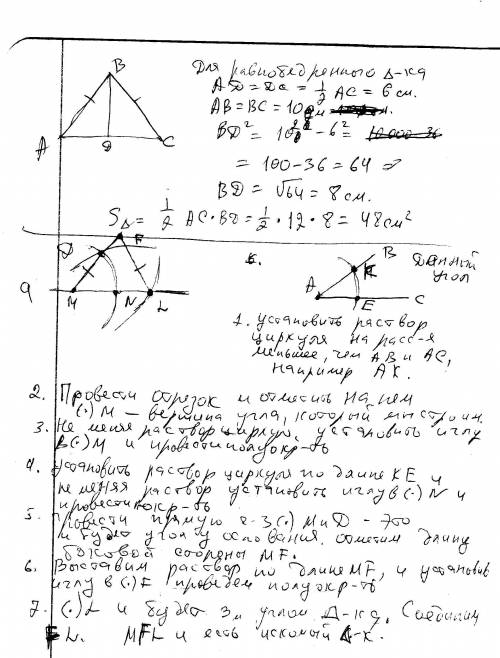 Для равнобедренного Δ-ка
AD = DC = 1/2 AC = 6 см.
AB = BC = 10 см
BD² = 10² - 6² =
= 100 - 36 = 64 ⇒
BD = √64 = 8 см.
S Δ = 1/2 AC · BD = 1/2 · 12 · 8 = 48 см²
B
A D C
D F
a M N L
Б. B Данный
A K угол
E C
1. установить раствор
циркуля на расс-я
меньшее, чем AB и AC,
например AK.
2. Провести отрезок и отметить на нем
(·) M - вершина угла, который мы строим.
3. Не меняя раствор циркуля, установить иглу
в (·) M и провести полуокр-ть
4. установить раствор циркуля по длине KE и
не меняя раствор установить иглу в (·) N и
провести окр-ть
5. Провести прямую ч-з (·) M и D - это
и будет угол у основания. отметим длину
боковой стороны MF.
6. Выставим раствор по длине MF, и установив
иглу в (·) F проведем полуокр-ть
7. (·) L и будет 3м углом Δ-ка. Соединим
F L. MFL и есть искомый Δ-к.